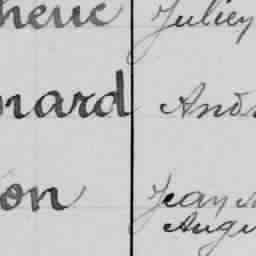 heuc Julien
nard And
on Jean
Augu